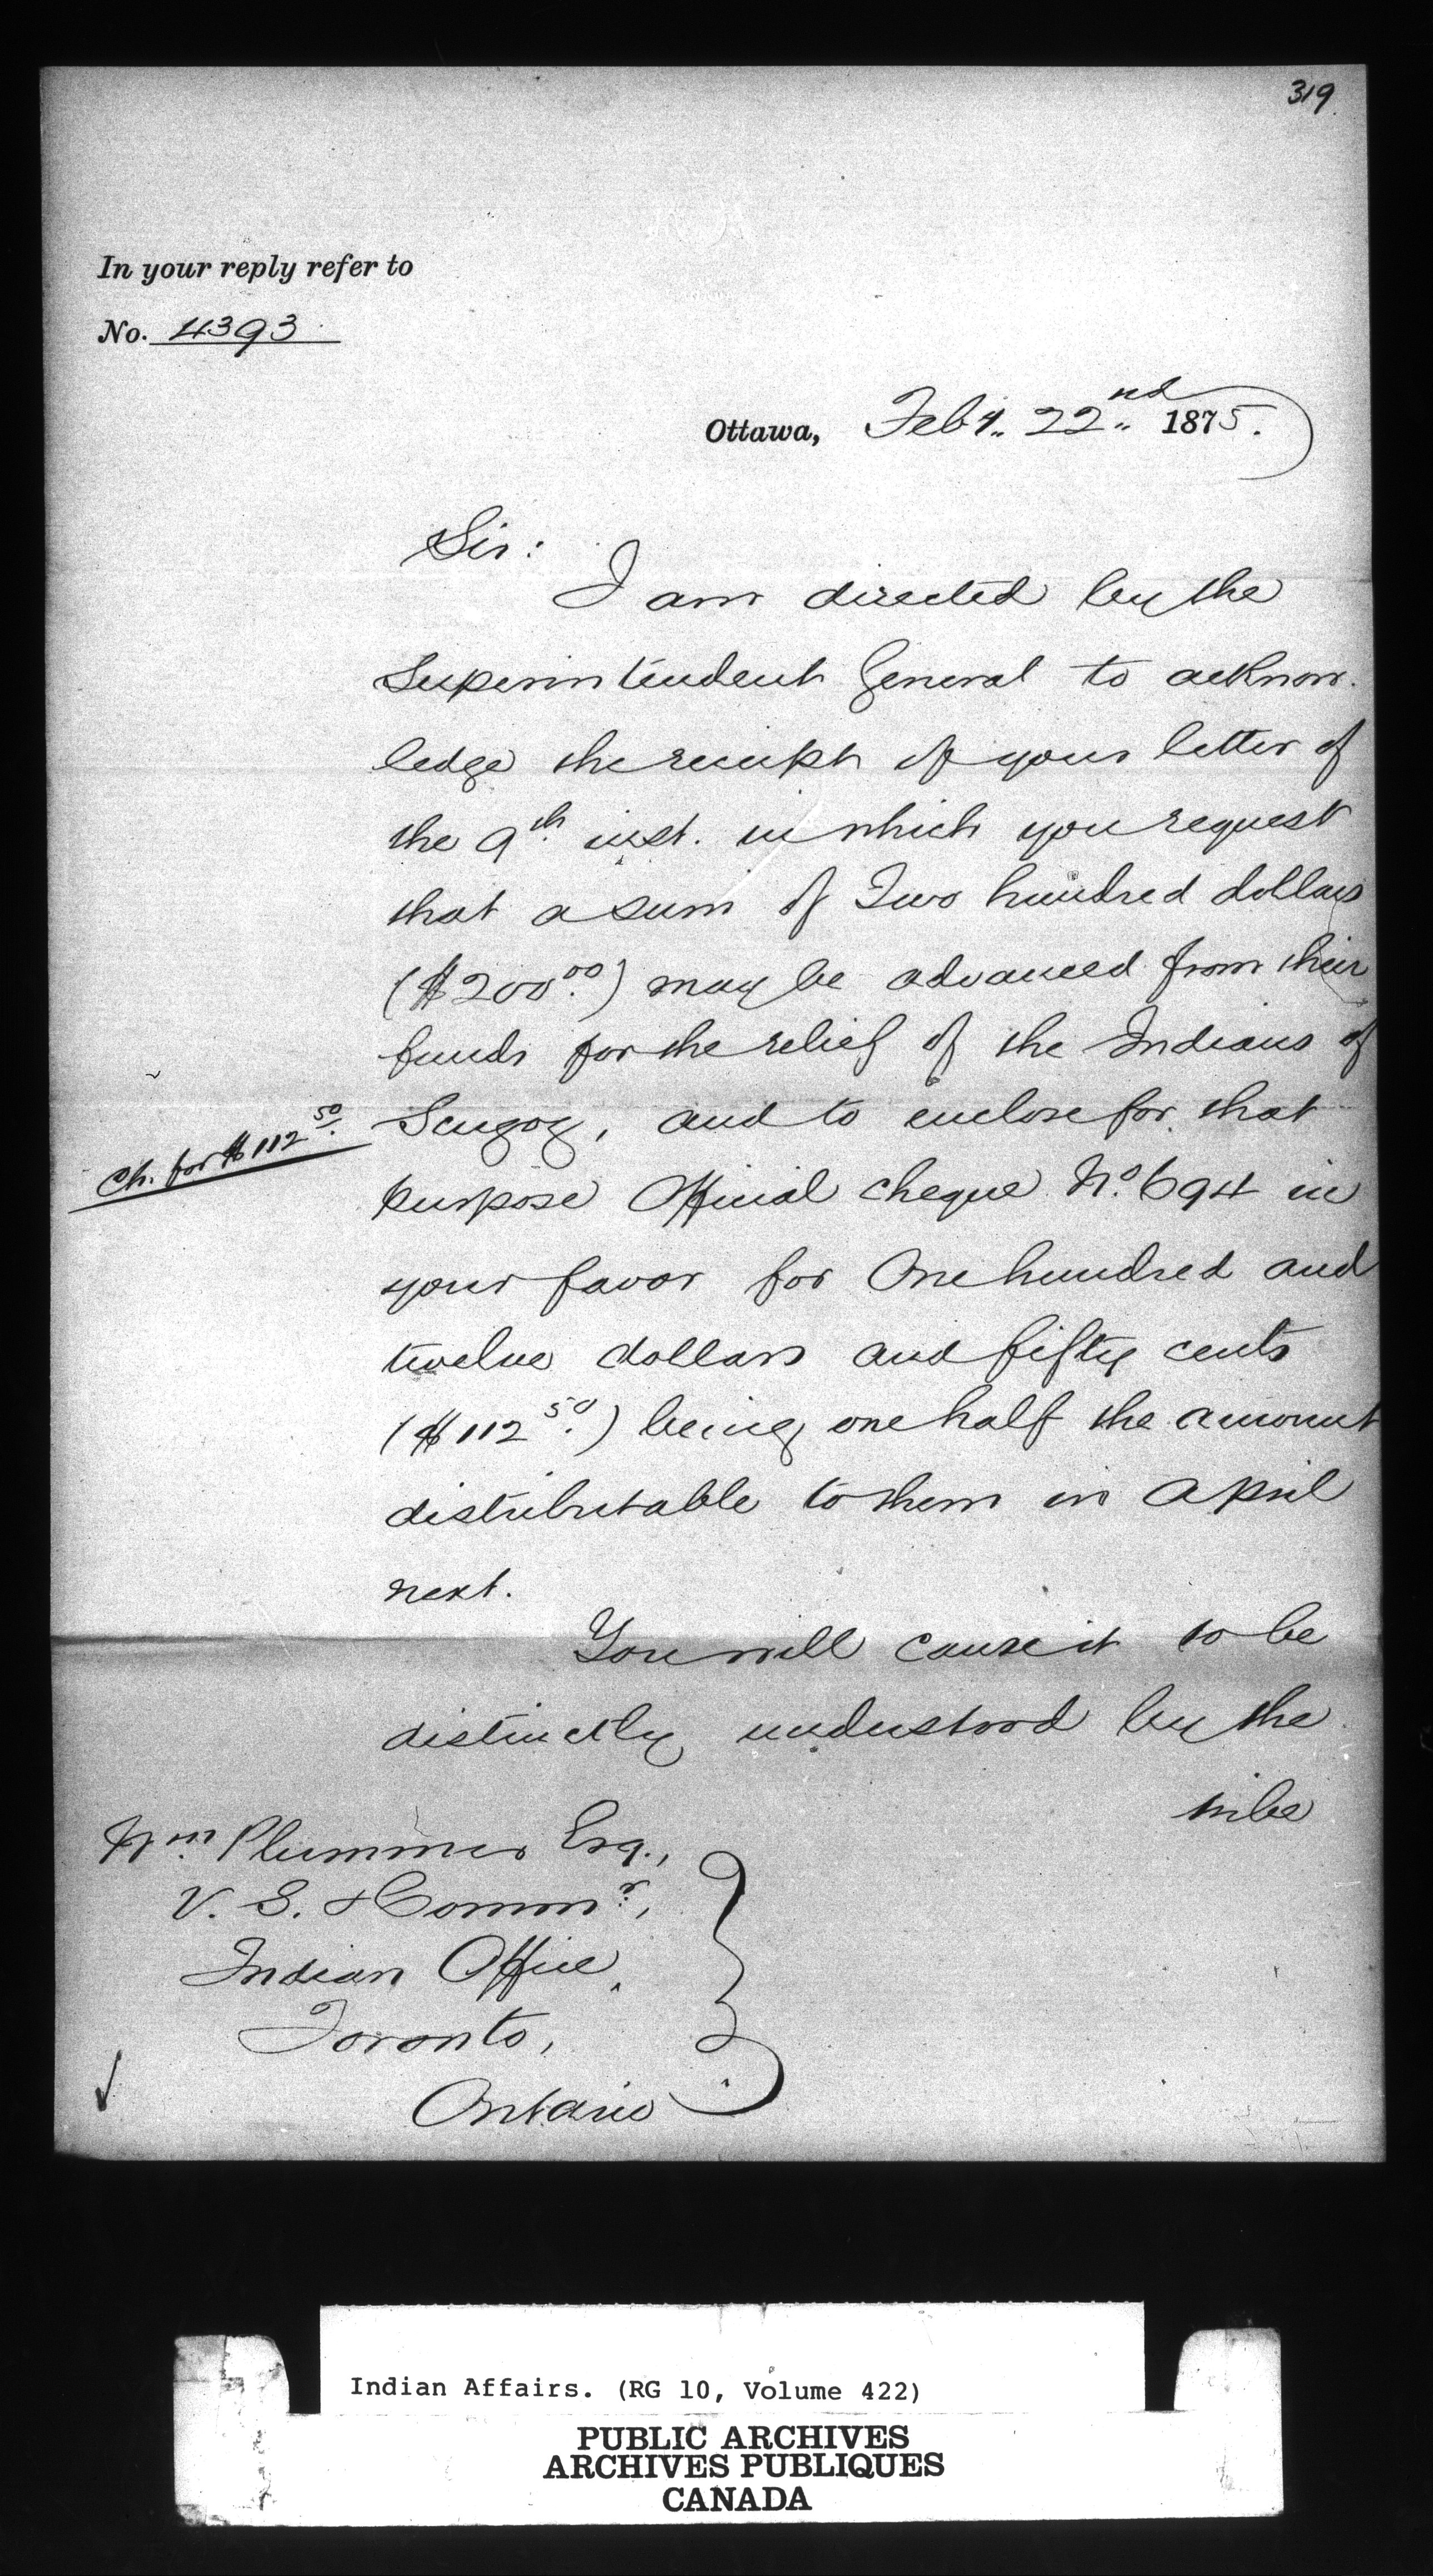 319
In your reply refer to
No. 4393
Ottawa, Feby. 22nd 1875.
Sir:
I am directed by the
Superintendent General to acknow-
ledge the receipt of your letter of
the 9th. inst. in which you request
that a sum of Two hundred dollars
($200.00) may be advanced from their
funds for the relief of the Indians of
Scugog, and to enclose for that
Ch. for $112.50
purpose Official cheque No. 694 in
your favor for One hundred and
twelve dollars and fifty cents
($112.50) being one half the amount
distributable to them in April
next.
You will cause it to be
distinctly understood by the
tribe
Wm. Plummer Esq.,
V. S. & Commr.,
Indian Office,
Toronto,
Ontario
Indian Affairs. (RG 10, Volume 422)
PUBLIC ARCHIVES
ARCHIVES PUBLIQUES
CANADA